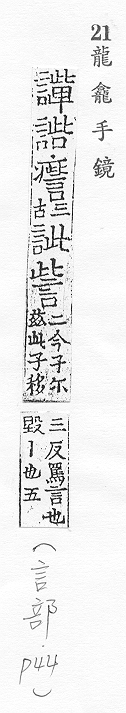 21 龍龕手鏡
三古訿訾二今子尔兹此子移
三反罵言也毀丨也五
(言部.p44)